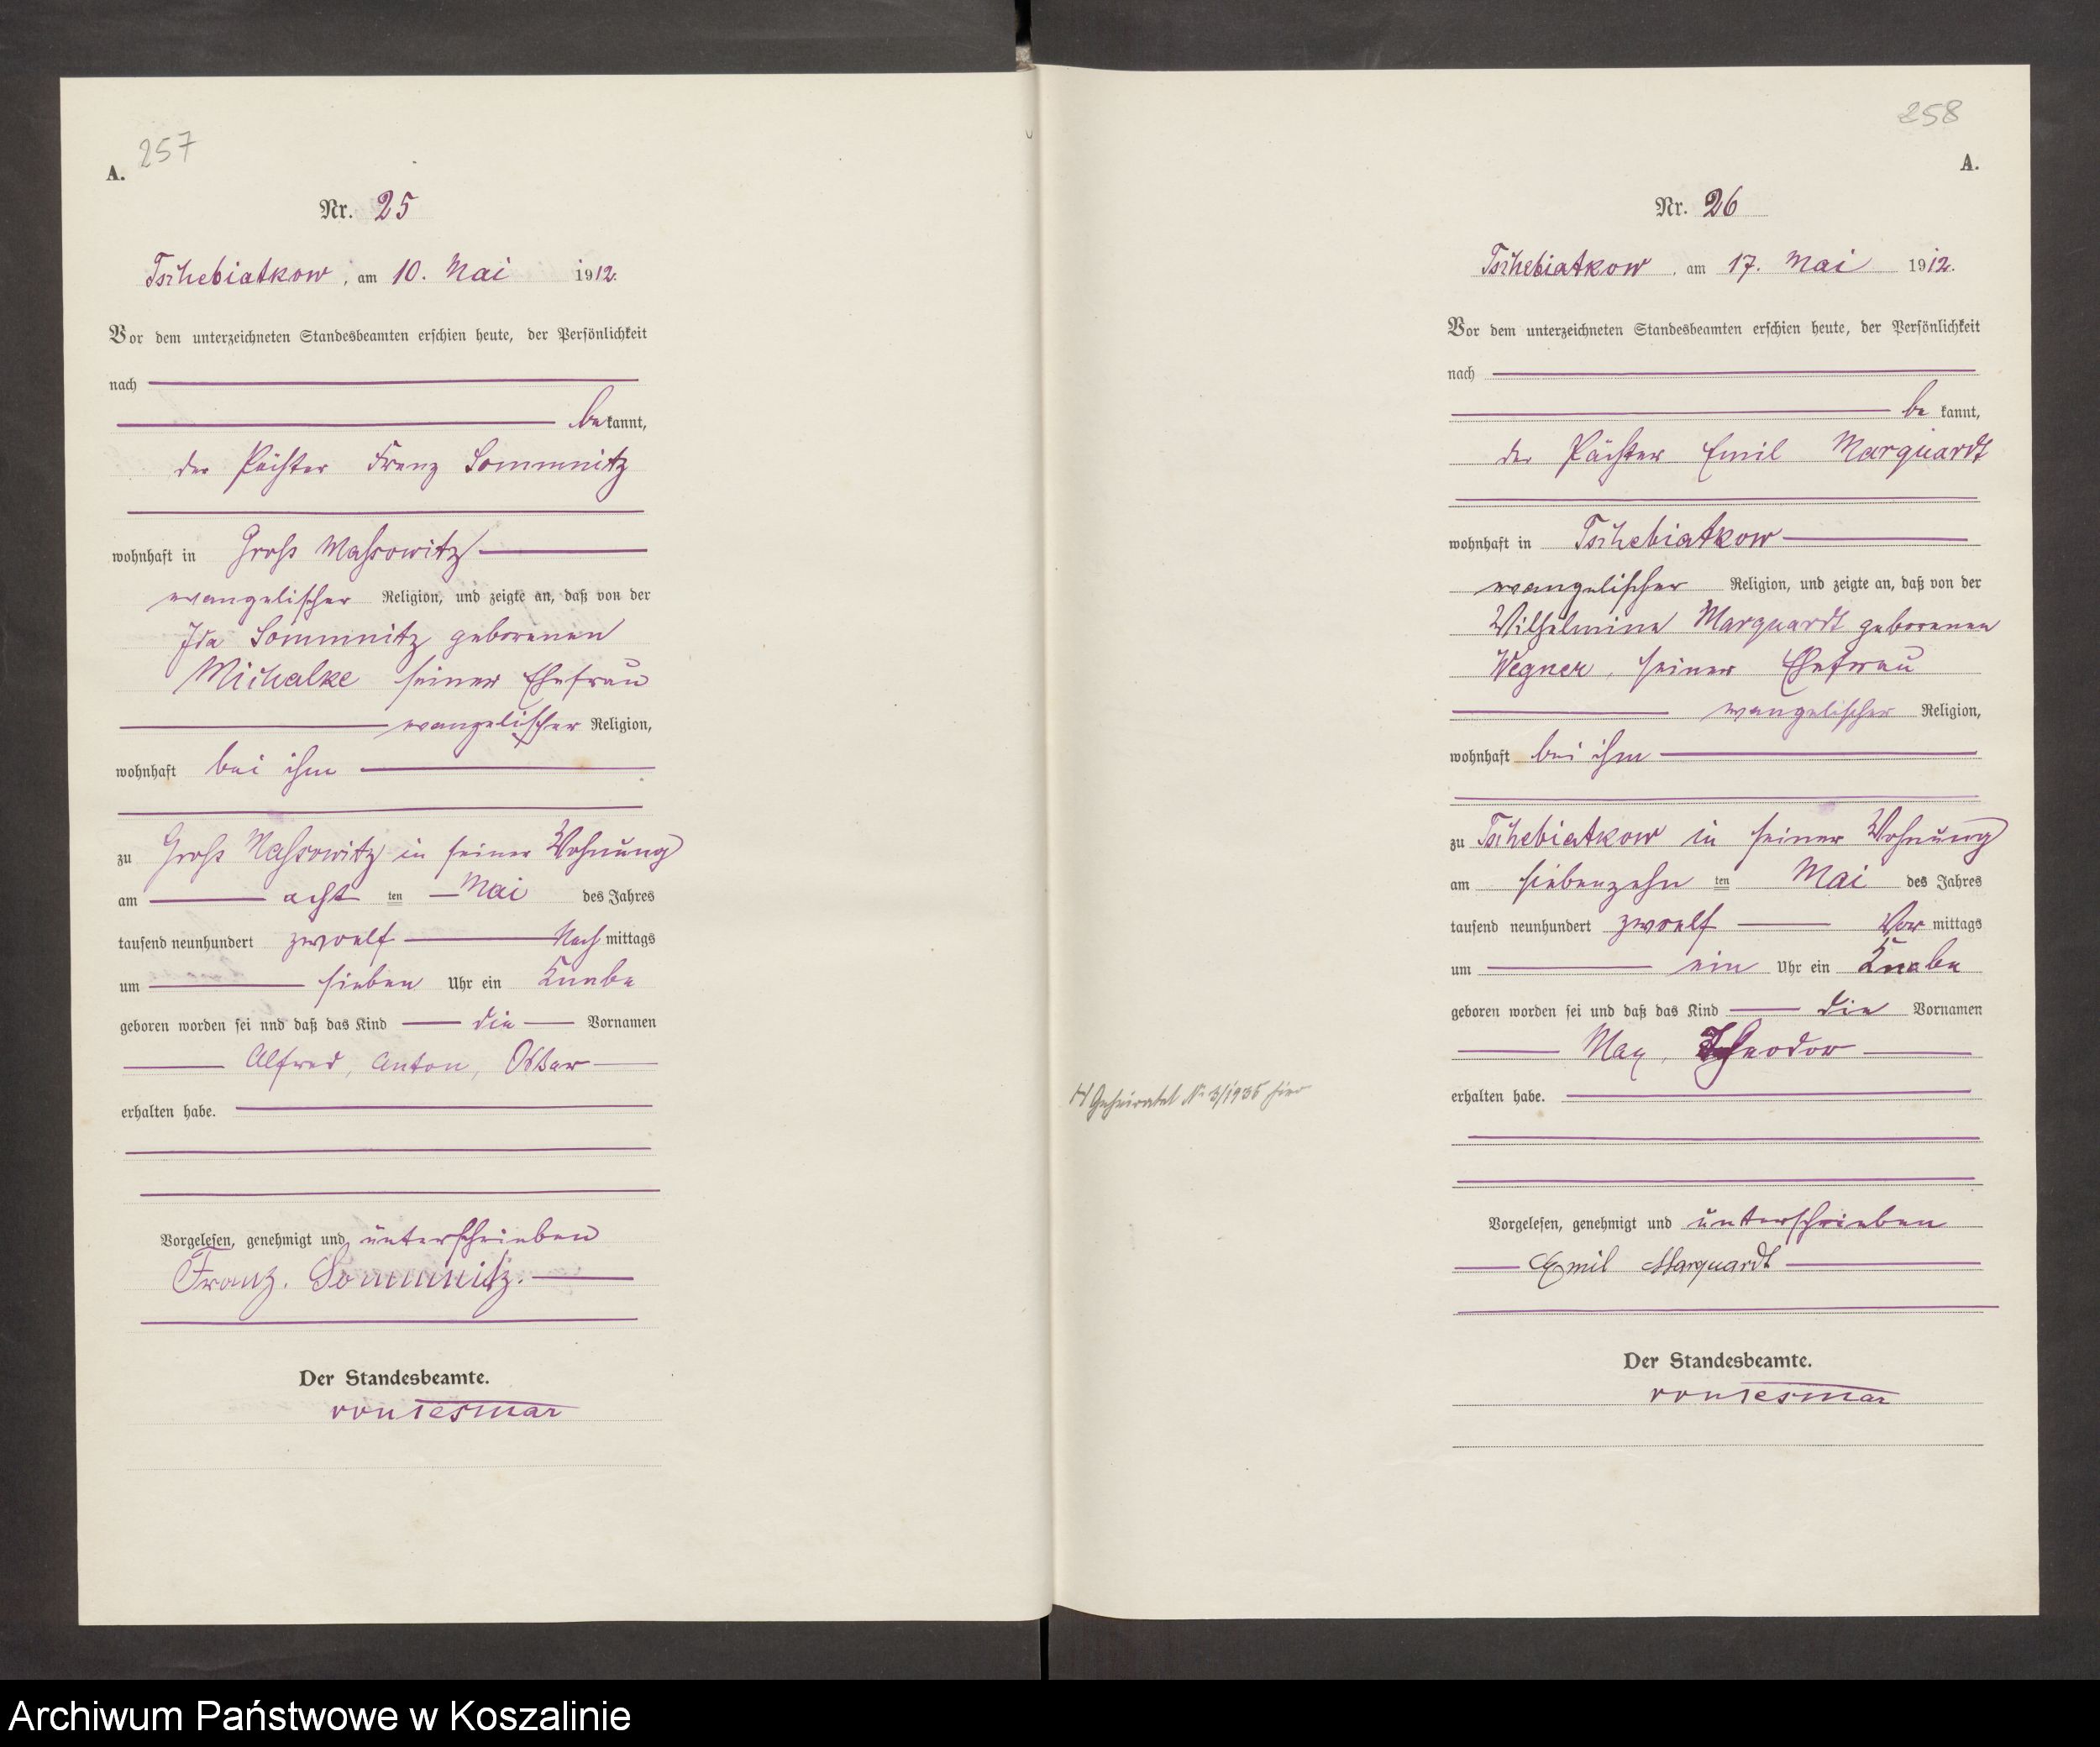 257
A.
Nr. 25
Tschebiatkow, am 10. Mai 1912.
Vor dem unterzeichneten Standesbeamten erschien heute, der Persönlichkeit
nach
be kannt,
der Pächter Franz Sommnitz
wohnhaft in Groß Massowitz
evangelischer Religion, und zeigte an, daß von der
Ida Sommnitz geborenen
Michalke seiner Ehefrau
evangelischer Religion,
wohnhaft bei ihm
zu Groß Massowitz in seiner Wohnung
am acht ten Mai des Jahres
tausend neunhundert zwoelf Nach mittags
um sieben Uhr ein Knabe
geboren worden sei nnd daß das Kind die Vornamen
Alfred, Anton, Oskar
erhalten habe.
Vorgelesen, genehmigt und unterschrieben
Franz. Sommnitz.
Der Standesbeamte.
von Tesmar
258
A.
Nr. 26
Tschebiatkow, am 17. Mai 1912.
Vor dem unterzeichneten Standesbeamten erschien heute, der Persönlichkeit
nach
be kannt,
der Pächter Emil Marquardt
wohnhaft in Tschebiatkow
evangelischer Religion, und zeigte an, daß von der
Wilhelmine Marquardt geborenen
Wegner, seiner Ehefrau
evangelischer Religion,
wohnhaft bei ihm
zu Tschebiatkow in seiner Wohnung
am siebenzehn ten Mai des Jahres
tausend neunhundert zwoelf Vor mittags
um ein Uhr ein Knabe
geboren worden sei und daß das Kind die Vornamen
Max, Theodor
H Geheiratet Nr 3/1935 hier
erhalten habe.
Vorgelesen, genehmigt und unterschrieben
Emil Marquardt
Der Standesbeamte.
von Tesmar
Archiwum Państwowe w Koszalinie